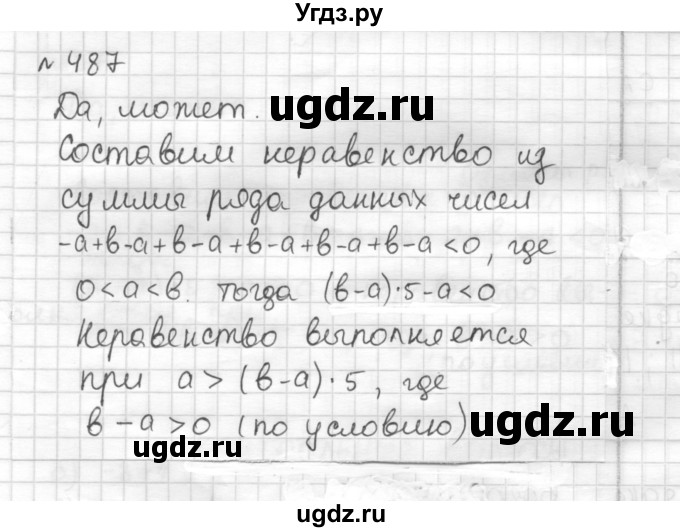 Угдз.ру
№ 487
Да, может.
ugdz.ru
Составим неравенство из
суммы ряда данных чисел
-а+в-а+в-а+в-а+в-а+в-а<0, где
0<а<в. тогда (в-а)·5-а<0
Неравенство выполняется
при а > (в-а)·5, где
в-а>0 (по условию)
ugdz.ru
ugdz.ru
ugdz.ru